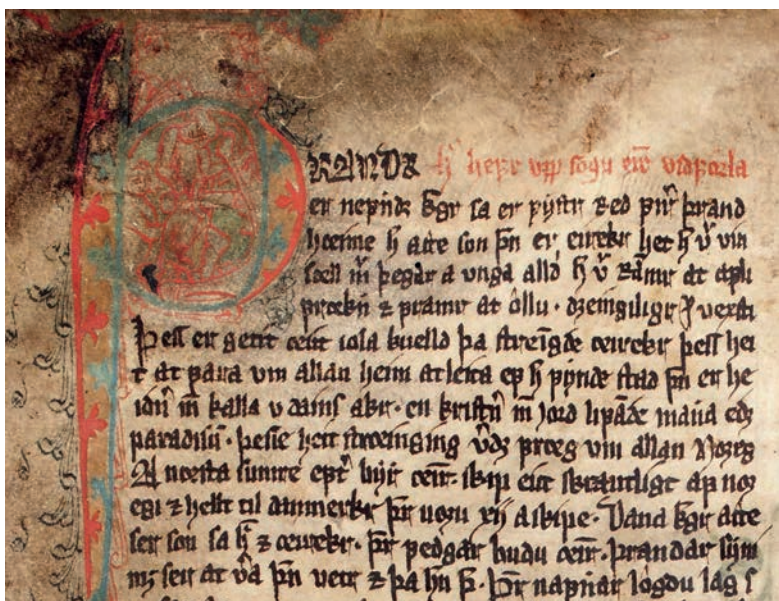 RANDR h̅ hefr vpp sogu eir̅ vidforla
er nefndr kgr sa er fystr red fir̅ þrand
heime h̅ atte son þn̅ er eirekr het h̅ v̅ vin
sæll m̅ þegar a unga alld h̅ v̅ ra̅mr at afli
frækn̅ ⁊ framr at ollu · dreingiligr j vexti
Þess er getit eitt iola kuelld þa strei̅gde eirekr þess hei
t at fara vm allan heim at leita ef h̅ fynde stad þn̅ er he
idn̅ m̅ kalla v dains akr · en kristn̅ m̅ jord lifa̅de man̅a edr
paradisu̅ · þesse heit streinging v̅d freg vm allan Noreg
A næsta sumre ept̅ byr eir̅ · skip eitt skrautligt af nor
egi ⁊ hellt til danmerkr þr̅ uoru xij a skipe · Dana kgr atte
ser son sa h̅ ⁊ eirekr · þr̅ fedgar budu eir̅ · þrandar syni
mꝫ ser at v̅a þn̅ vetr ⁊ þa hn̅ þ̅ · þr̅ nafnar logdu lag s